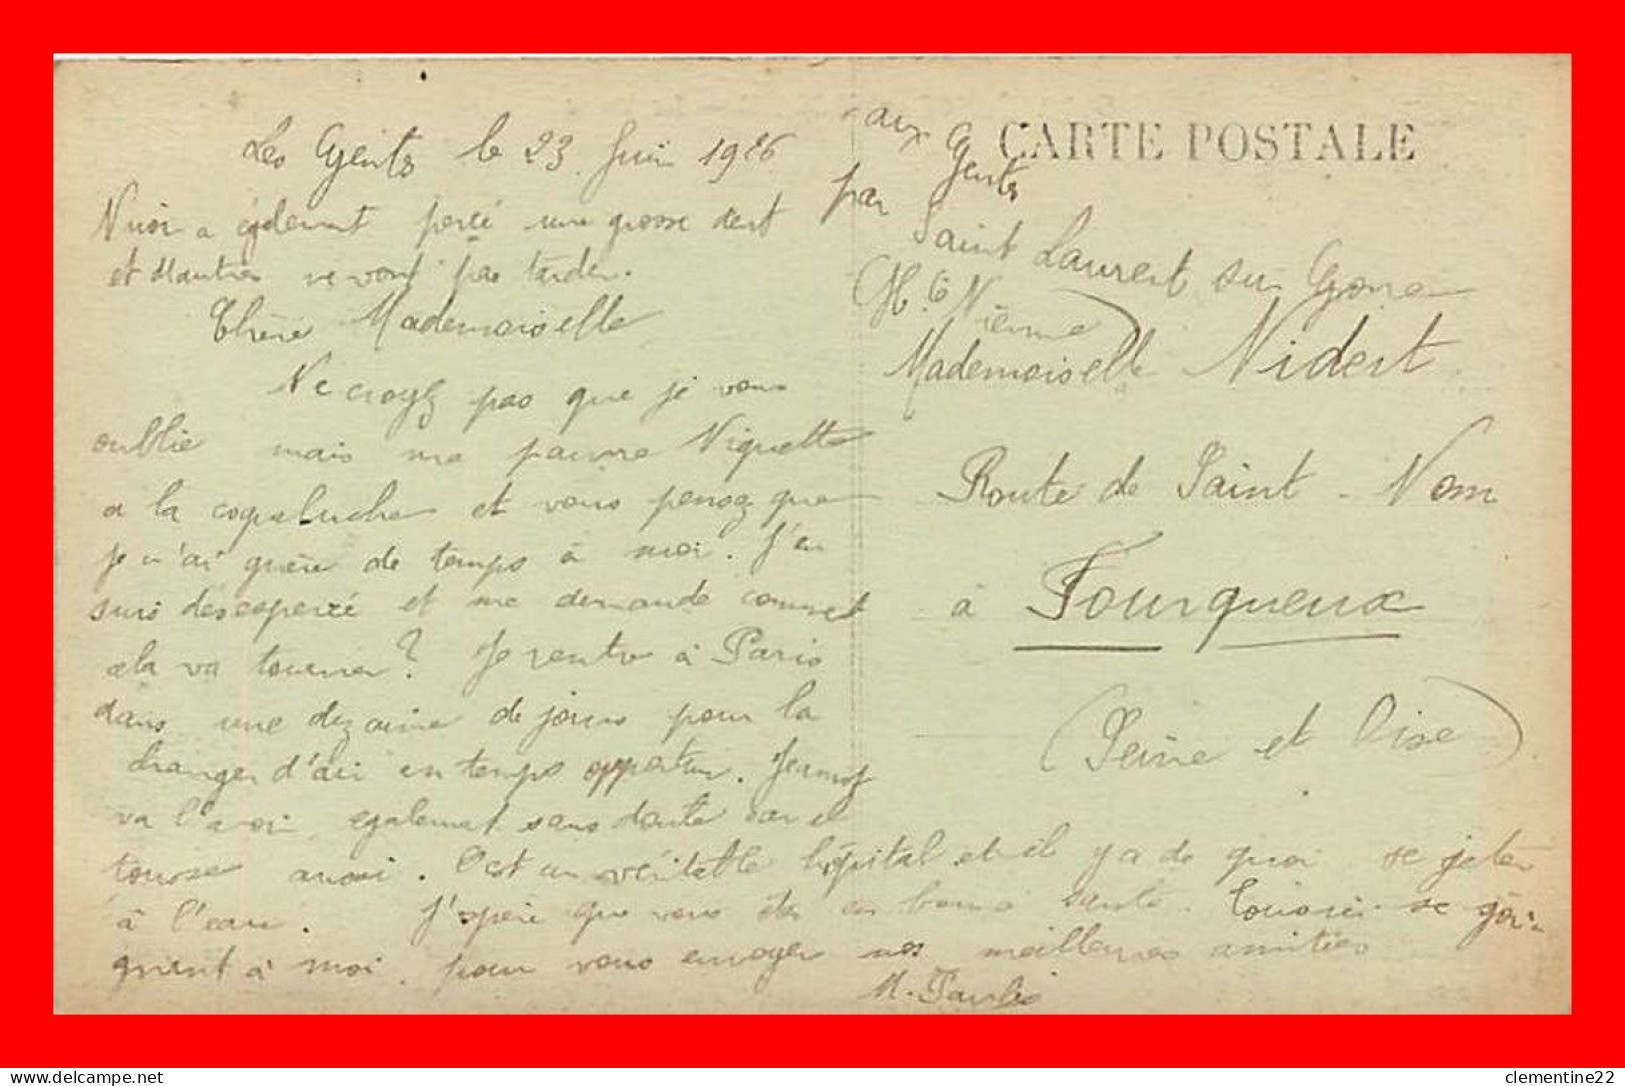 Les Gents le 23 Juin 1926
a également percé une grosse dent
et d'autres ne vont pas tarder.
Chère Mademoiselle
Ne croyez pas que je vous
oublie mais ma pauvre Niquette
a la coqueluche et vous pensez que
je n'ai guère de temps à moi. J'en
suis désespérée et me demande comment
cela va tourner? Je rentre à Paris
dans une dizaine de jours pour la
changer d'air en temps opportun.
va l'avoir également sans doute car il
tousse aussi. C'est un véritable hôpital et il y a de quoi se jeter
à l'eau. J'espère que vous êtes en bonne santé. se joi-
gnent à moi pour vous envoyer nos meilleures amitiés
M.
aux Gents
par Saint Laurent sur Gorre
Hte Vienne
CARTE POSTALE
Mademoiselle Nidert
Route de Saint-Nom
à Fourqueux
(Seine et Oise)
clementine22